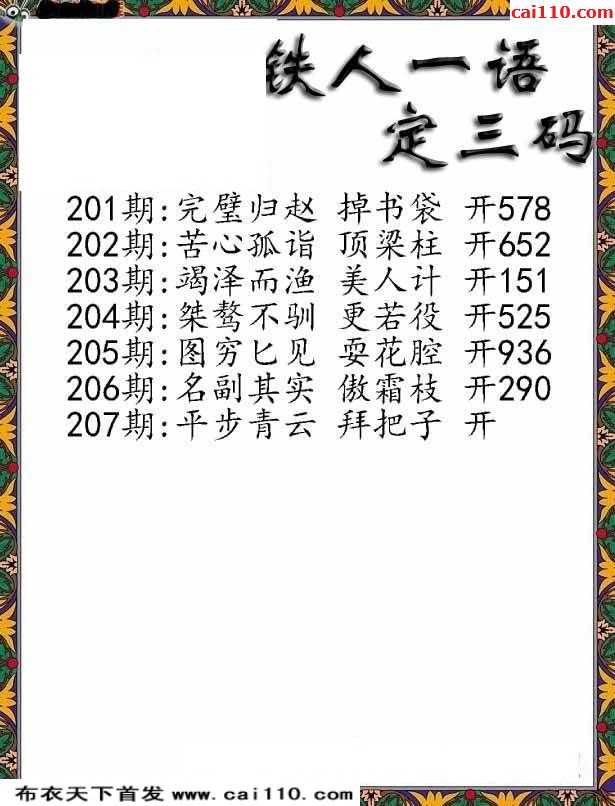 cai110.com
铁人一语
定三码
201期:完璧归赵 掉书袋 开578
202期:苦心孤诣 顶梁柱 开652
203期:竭泽而渔 美人计 开151
204期:桀骜不驯 更若役 开525
205期:图穷匕见 耍花腔 开936
206期:名副其实 傲霜枝 开290
207期:平步青云 拜把子 开
布衣天下首发 www.cai110.com